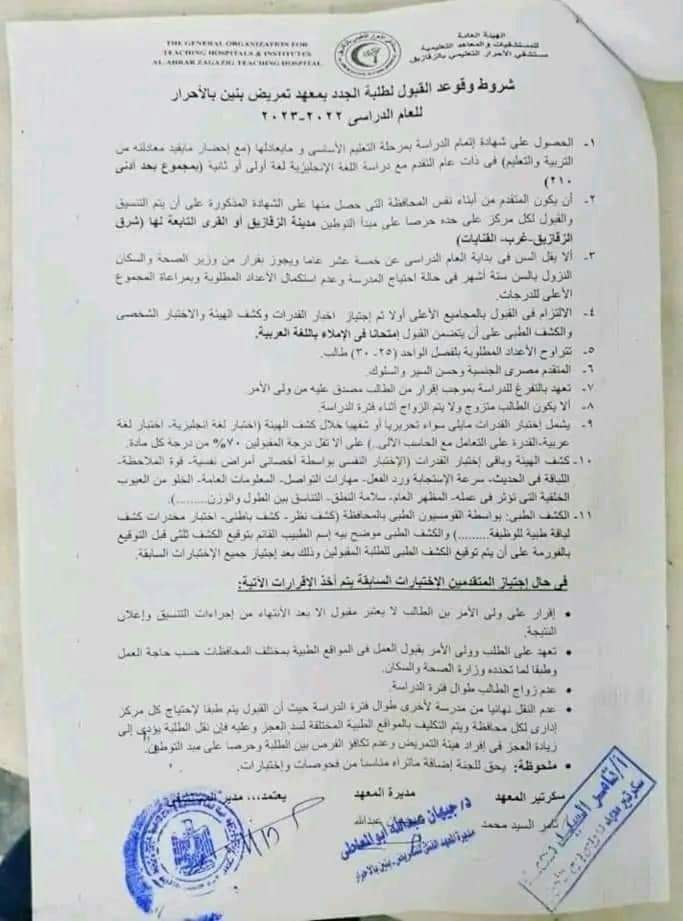 THE GENERAL ORGANIZATION FOR
TEACHING HOSPITALS & INSTITUTES
AL-AHRAR ZAGAZIG TEACHING HOSPITAL
الهيئة العامة
للمستشفيات والمعاهد التعليمية
مستشفى الأحرار التعليمي بالزقازيق
شروط وقوعد القبول لطلبة الجدد بمعهد تمريض بنين بالأحرار
للعام الدراسى ٢٠٢٢-٢٠٢٣
١- الحصول على شهادة إتمام الدراسة بمرحلة التعليم الأساسى و مايعادلها (مع إحضار مايفيد معادلته من
التربية والتعليم) فى ذات عام التقدم مع دراسة اللغة الإنجليزية لغة أولى أو ثانية (بمجموع بحد أدنى
٢١٠)
٢- أن يكون المتقدم من أبناء نفس المحافظة التى حصل منها على الشهادة المذكورة على أن يتم التنسيق
والقبول لكل مركز على حده حرصا على مبدأ التوطين مدينة الزقازيق أو القرى التابعة لها (شرق
الزقازيق-غرب- القنايات)
٣- ألا يقل السن فى بداية العام الدراسى عن خمسة عشر عاما ويجوز بقرار من وزير الصحة والسكان
النزول بالسن ستة أشهر فى حالة احتياج المدرسة وعدم استكمال الأعداد المطلوبة وبمراعاة المجموع
الأعلى للدرجات.
٤- الالتزام فى القبول بالمجاميع الأعلى أولا ثم إجتياز اخبار القدرات وكشف الهيئة والاختبار الشخصى
والكشف الطبى على أن يتضمن القبول إمتحانا فى الإملاء باللغة العربية.
٥- تتراوح الأعداد المطلوبة بلفصل الواحد (٢٥- ٣٠) طالب.
٦- المتقدم مصرى الجنسية وحسن السير والسلوك.
٧- تعهد بالتفرغ للدراسة بموجب إقرار من الطالب مصدق عليه من ولى الأمر.
٨- ألا يكون الطالب متزوج ولا يتم الزواج أثناء فترة الدراسة.
٩- يشمل إختبار القدرات مايلى سواء تحريريا أو شفهيا خلال كشف الهيئة (اختبار لغة إنجليزية- اختبار لغة
عربية-القدرة على التعامل مع الحاسب الألى..) على ألا تقل درجة المقبولين ٧٠% من درجة كل مادة.
١٠- كشف الهيئة وباقى إختبار القدرات (الإختبار النفسى بواسطة أخصائى أمراض نفسية- قوة الملاحظة-
اللباقة فى الحديث- سرعة الإستجابة ورد الفعل- مهارات التواصل- المعلومات العامة- الخلو من العيوب
الخلقية التى تؤثر فى عمله- المظهر العام- سلامة النطق- التناسق بين الطول والوزن.........).
١١- الكشف الطبى: بواسطة القومسيون الطبى بالمحافظة (كشف نظر- كشف باطنى- اختبار مخدرات كشف
لياقة طبية للوظيفة.........) والكشف الطبى موضح بيه إسم الطبيب القائم بتوقيع الكشف ثلثى قبل التوقيع
بالفورمة على أن يتم توقيع الكشف الطبى للطلبة المقبولين وذلك بعد إجتياز جميع الإختبارات السابقة.
فى حال إجتياز المتقدمين الإختبارات السابقة يتم أخذ الإقرارات الآتية:
• إقرار على ولى الأمر بن الطالب لا يعتبر مقبول الا بعد الأنتهاء من إجراءات التنسيق وإعلان
النتيجة.
• تعهد على الطلب وولى الأمر بقبول العمل فى المواقع الطبية بمختلف المحافظات حسب حاجة العمل
وطبقا لما تحدده وزارة الصحة والسكان.
• عدم زواج الطالب طوال فترة الدراسة.
• عدم النقل نهائيا من مدرسة لأخرى طوال فترة الدراسة حيث أن القبول يتم طبقا لإحتياج كل مركز
إدارى لكل محافظة ويتم التكليف بالمواقع الطبية المختلفة لسد العجز وعليه فإن نقل الطلبة يؤدى إلى
زيادة العجز فى إفراد هيئة التمريض وعدم تكافؤ الفرص بين الطلبة وحرصا على مبد التوطين.
• ملحوظة: يحق للجنة إضافة ماتراه مناسبا من فحوصات وإختبارات.
سكرتير المعهد مديرة المعهد يعتمد،،، مدير المستشفى
تامر السيد محمد عبدالله
د/جيهان عبدالله أبوالعاطى
مديرة المعهد الفنى للتمريض-بنين بالأحرار
أ/تامر السيد
سكرتير معهد